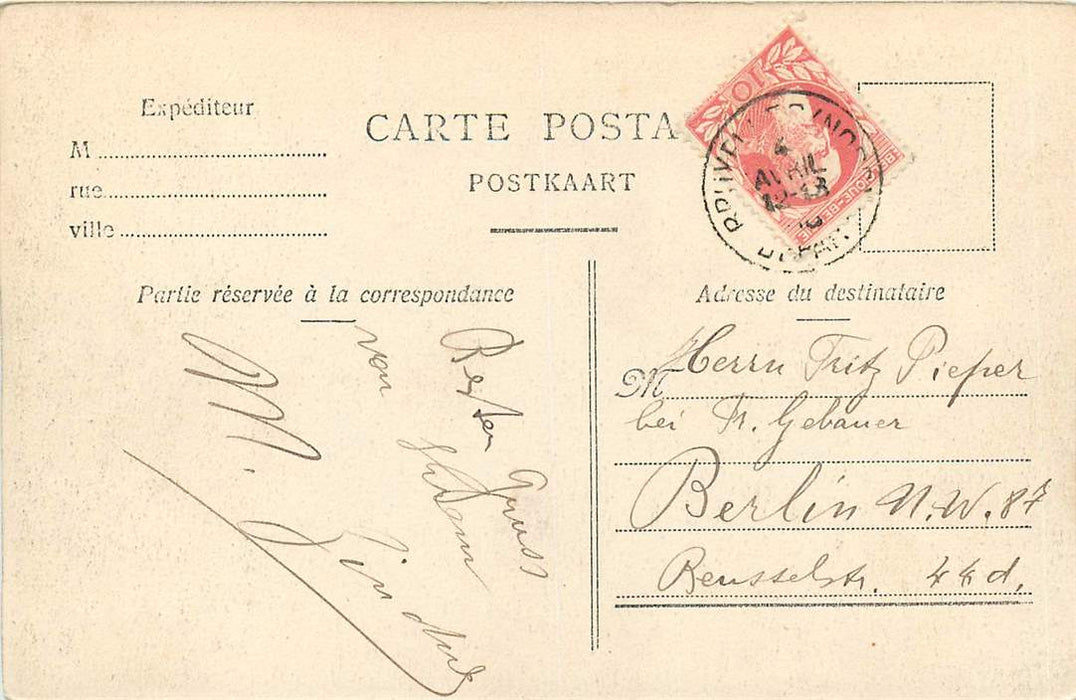 Expéditeur
M
rue
ville
CARTE POSTA
POSTKAART
10
4
AVRIL
12-13
Partie réservée à la correspondance
Adresse du destinataire
Besten Gruss
von
M.
M Herrn Fritz Pieper
bei Fr. Gebauer
Berlin N.W. 87
Beusselstr. 44d.